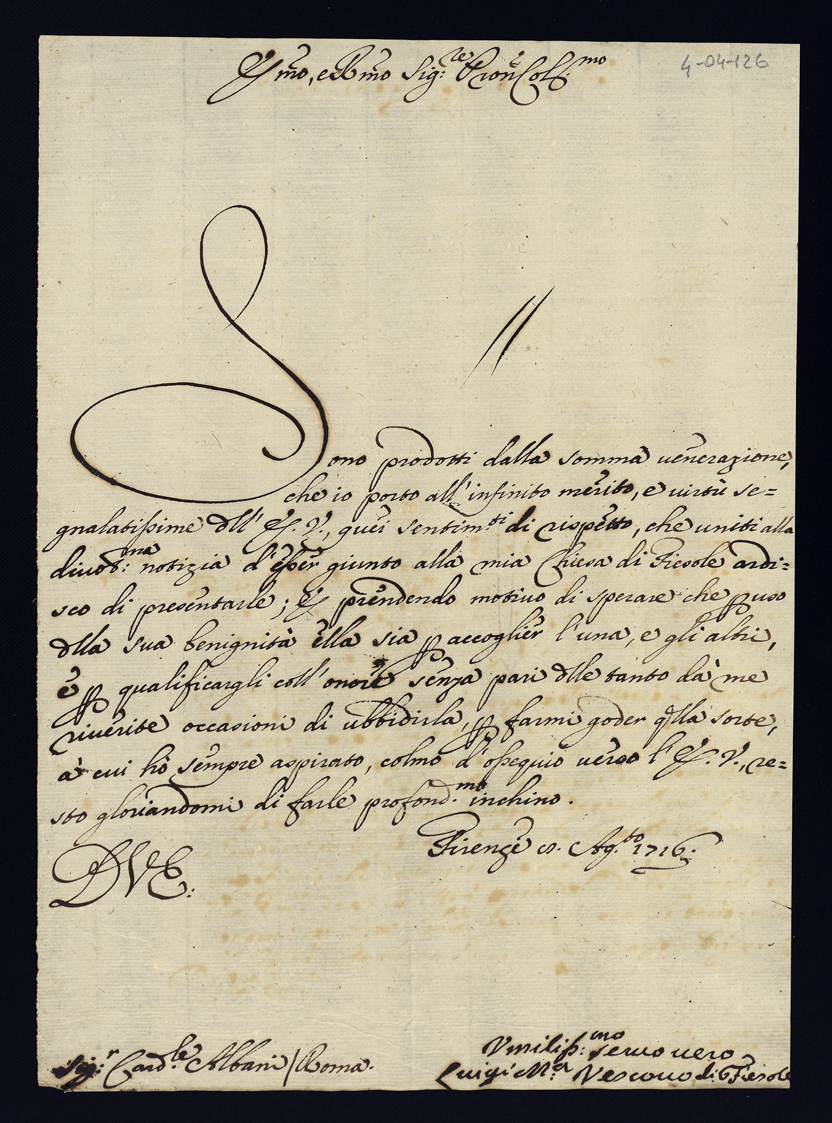 E.mo, e R.mo Sig:re Pron Col.mo
4-04-126
Sono prodotti dalla somma uenerazione,
che io porto all' infinito merito, e uirtù se=
gnalatissime dll' E. V., quei sentim.ti di rispetto, che uniti alla
diuot:ma notizia d'esser giunto alla mia Chiesa di Fiesole ardi=
sco di presentarle; E prendendo motiuo di sperare che p uso
dlla sua benignità ella sia p accoglier l'una, e gli altri,
e p qualificargli coll' onore senza pari dlle tanto dà me
riuerite occasioni di ubbidirla, p farmi goder qlla sorte,
à cui hò sempre aspirato, colmo d'ossequio uerso l'E. V., re=
sto gloriandomi di farle profond.mo inchino.
Firenze 8. Ag.to 1716.
D V E:
Vmiliss:mo seruo uero
Sig:r Card.le Albani / Roma.
Luigi M:a Vescouo di Fiesole